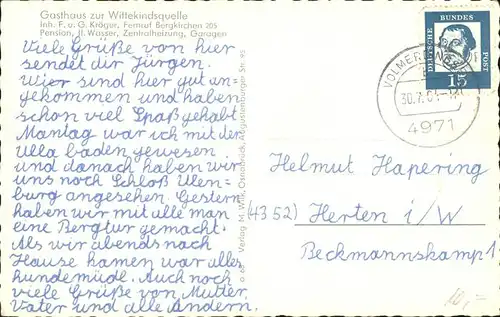 Gasthaus zur Wittekindsquelle
Inh. F. u. G. Kröger, Fernruf Bergkirchen 205
Pension, fl. Wasser, Zentralheizung, Garagen
Viele Grüße von hier
sendet dir Jürgen.
Wier sind hier gut an-
gekommen und haben
schon viel Spaß gehabt.
Mantag war ich mit den
Ulla baden gewesen
und danach haben wir
uns noch Schloß Ulen-
burg angesehen. Gestern
haben wir mit alle man
eine Bergtur gemacht.
Als wir abends nach
Hause kamen war alles
hundemüde. Auch noch
viele Grüße von Mutter
Vater und alle Andern.
Verlag M. Wilk, Osnabrück, Augustenburger Str. 95
DEUTSCHE BUNDES POST
15
30.7.
4971
Helmut Hapering
(4352) Herten i/W
Beckmannskamp 1
10,-